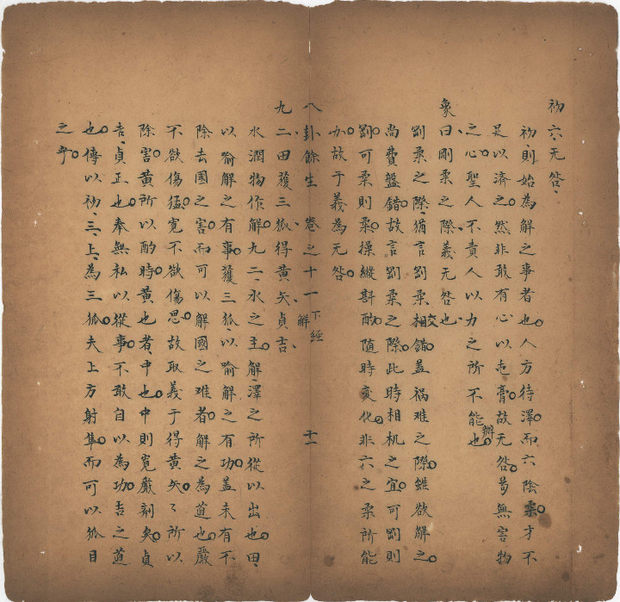 初六无咎
初則始為解之事者也人方待澤而六陰柔才不
足以濟之然非敢有心以屯膏故无咎茍無害物
之心聖人不責人以力之所不能辦也
象曰剛柔之際義无咎也
劉柔之際猶言劉柔相錯盖禍难之際雖欲解之
交
尚費盤錯故言劉柔之際此時相机之宜可劉則
劉可柔則柔操縱斟酌随時变化非六之柔所能
办故于義為无咎
八卦餘生 卷之十一 下經 解 十二
九二田獲三狐得黄矢貞吉
水潤物作解九二水之主解澤之所從以出也田
以喻解之有事獲三狐以喻解之有功盖未有不
除去國之害而可以解國之难者解之為道也嚴
不欲傷猛寛不欲傷思故取義于得黄矢矢所以
除害黄所以酌時黄也者中也中則寛嚴劑矣貞
吉貞正也奉無私以從事不敢自以為功吉之道
也傳以初三上為三狐夫上方射隼而可以狐目
之乎